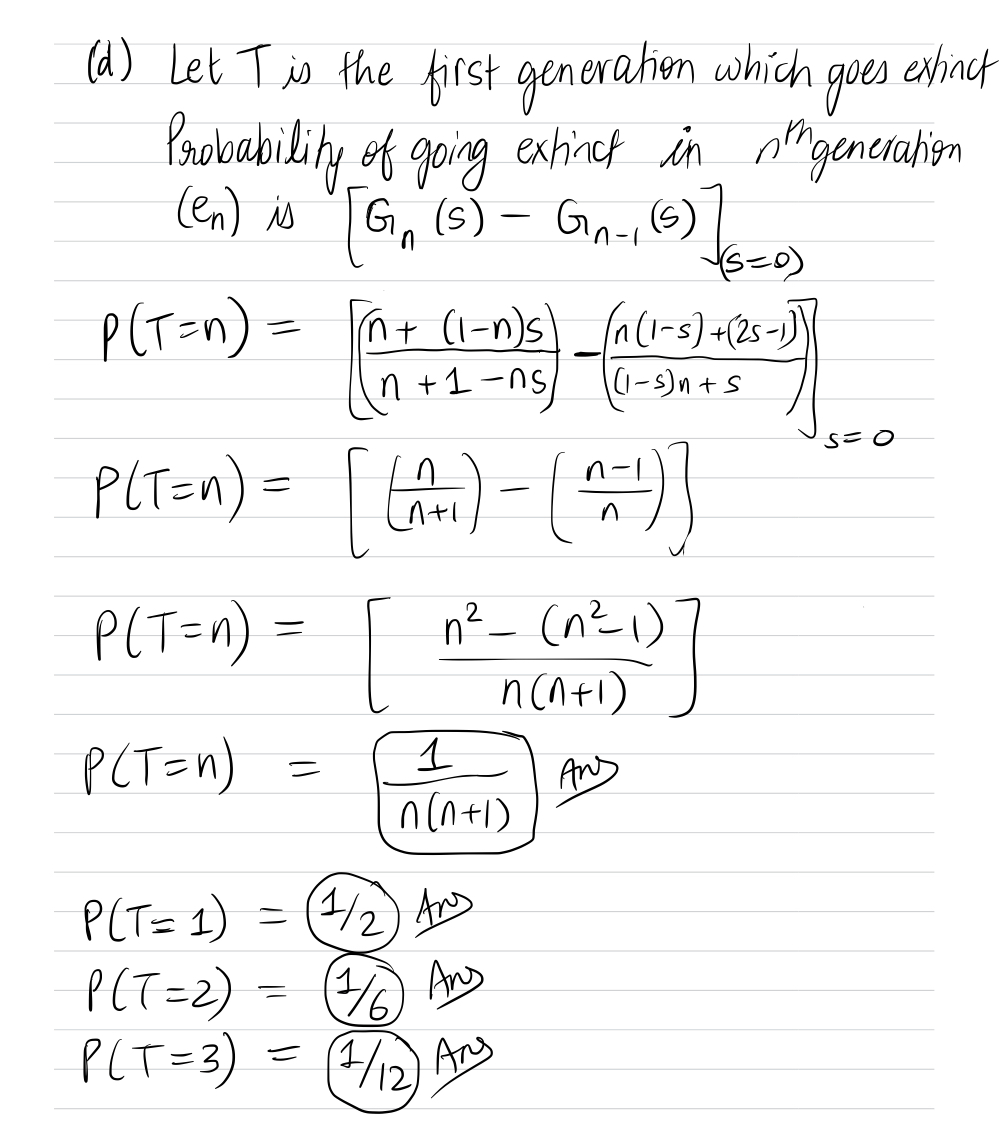 (d) Let T is the first generation which goes extinct
Probability of going extinct in nth generation
(en) is [Gn (s) − Gn−1 (s)](s=0)
P(T=n) = [((n + (1−n)s)/(n + 1 − ns)) − ((n(1−s)+(2s−1))/((1−s)n + s))]s=0
P(T=n) = [(n/(n+1)) − ((n−1)/n)]
P(T=n) = [(n² − (n²−1))/(n(n+1))]
P(T=n) = 1/(n(n+1)) Ans
P(T=1) = 1/2 Ans
P(T=2) = 1/6 Ans
P(T=3) = 1/12 Ans